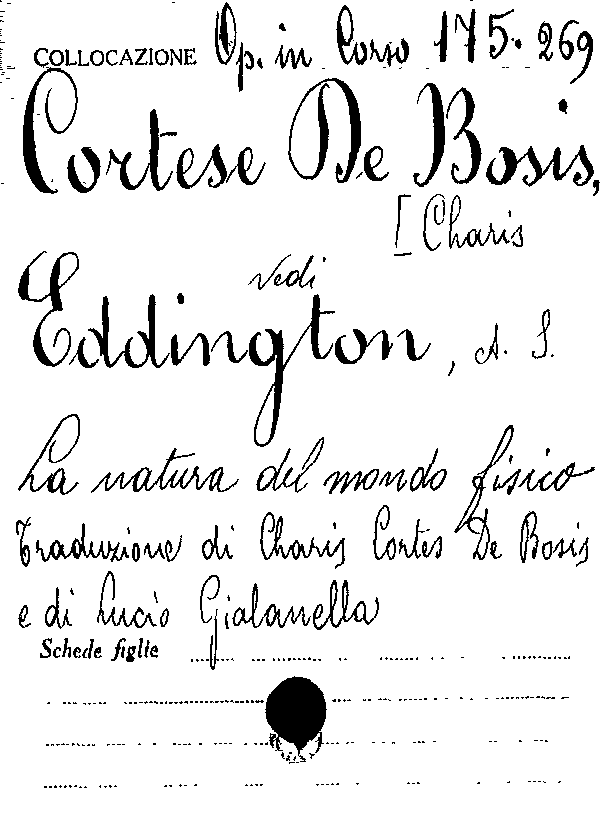 COLLOCAZIONE Op. in Corso 175. 269
Cortese De Bosis,
[Charis
vedi
Eddington, A. S.
La natura del mondo fisico
Traduzione di Charis Cortes De Bosis
e di Lucio Gialanella
Schede figlie